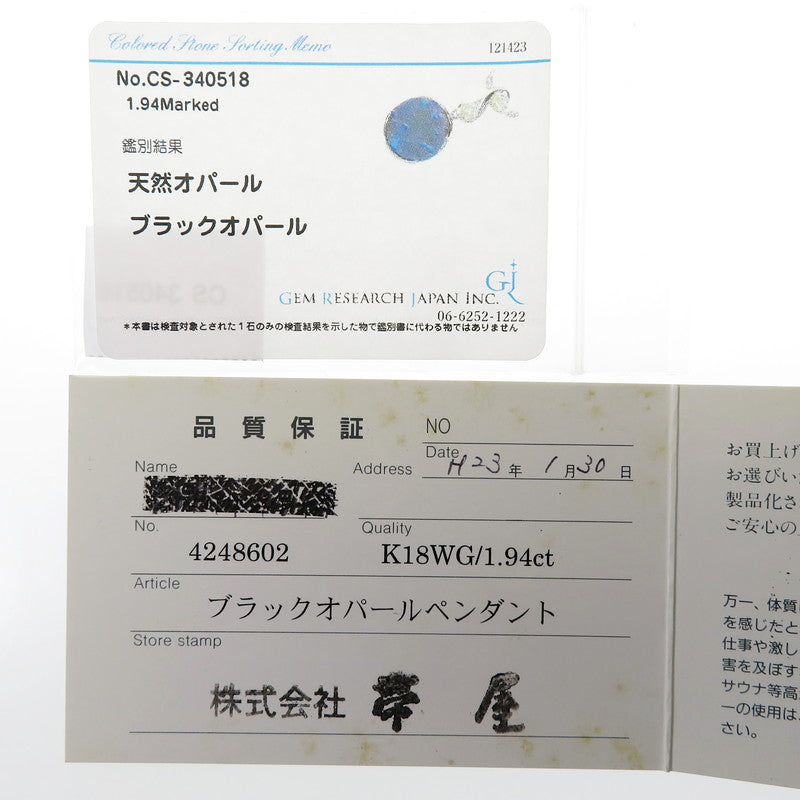 Colored Stone Sorting Memo
121423
No.CS-340518
1.94Marked
鑑別結果
天然オパール
ブラックオパール
GJR
GEM RESEARCH JAPAN INC.
06-6252-1222
*本書は検査対象とされた1石のみの検査結果を示した物で鑑別書に代わる物ではありません
CS 340518
品質保証
NO
Date H23年 1月30日
Name
Address
No.
4248602
Quality
K18WG/1.94ct
Article
ブラックオパールペンダント
Store stamp
株式会社 帯屋
お買上げ
お選びい
製品化さ
ご安心の
万一、体質
を感じたと
仕事や激し
害を及ぼす
サウナ等高
一の使用は、
さい。